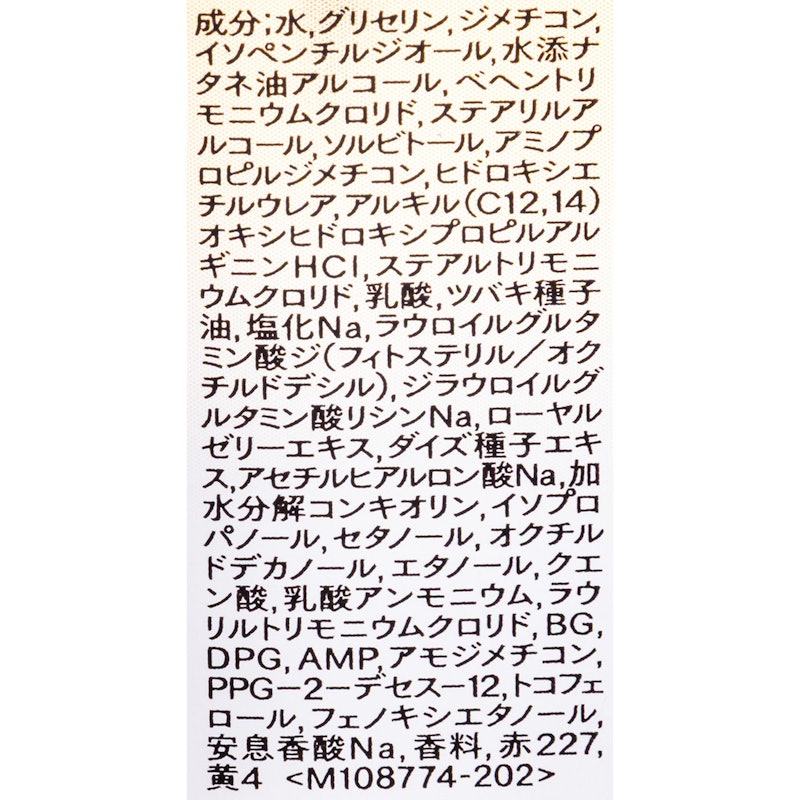 成分;水,グリセリン,ジメチコン,
イソペンチルジオール,水添ナ
タネ油アルコール,ベヘントリ
モニウムクロリド,ステアリルア
ルコール,ソルビトール,アミノプ
ロピルジメチコン,ヒドロキシエ
チルウレア,アルキル(C12,14)
オキシヒドロキシプロピルアル
ギニンHCl,ステアルトリモニ
ウムクロリド,乳酸,ツバキ種子
油,塩化Na,ラウロイルグルタ
ミン酸ジ(フィトステリル/オク
チルドデシル),ジラウロイルグ
ルタミン酸リシンNa,ローヤル
ゼリーエキス,ダイズ種子エキ
ス,アセチルヒアルロン酸Na,加
水分解コンキオリン,イソプロ
パノール,セタノール,オクチル
ドデカノール,エタノール,クエ
ン酸,乳酸アンモニウム,ラウ
リルトリモニウムクロリド,BG,
DPG,AMP,アモジメチコン,
PPG-2-デセス-12,トコフェ
ロール,フェノキシエタノール,
安息香酸Na,香料,赤227,
黄4 <M108774-202>